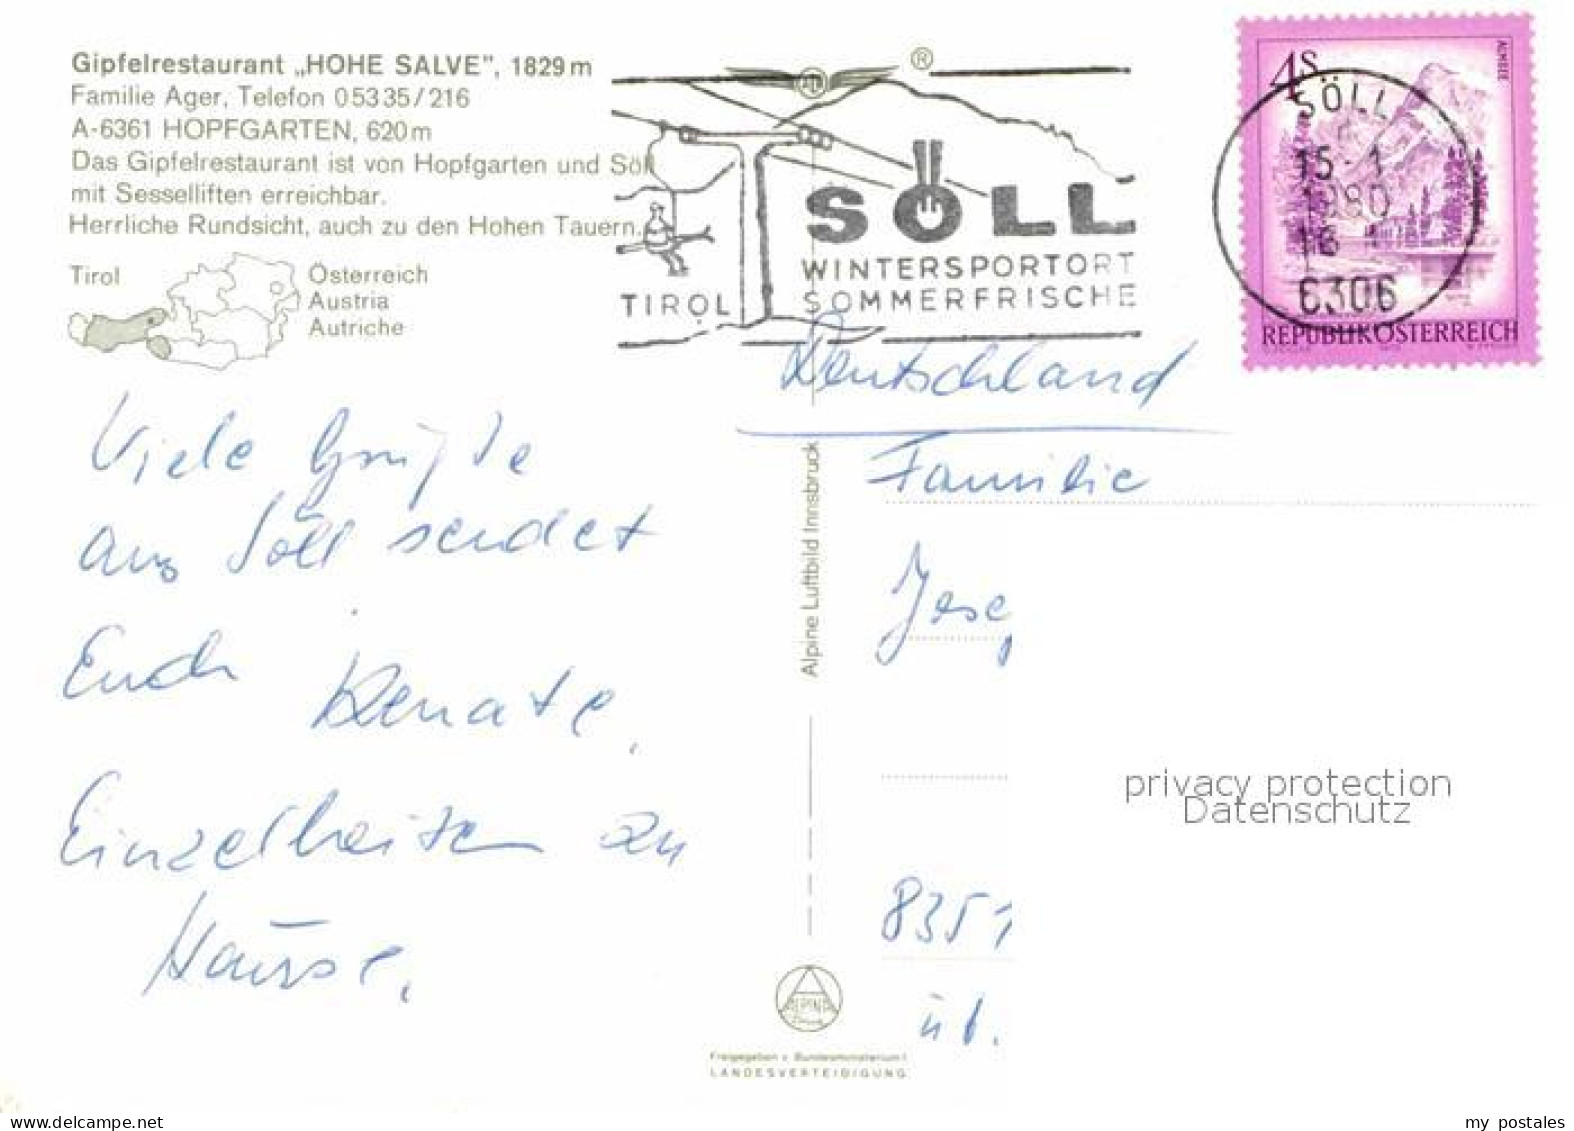 Gipfelrestaurant „HOHE SALVE”, 1829m
Familie Ager, Telefon 05335/216
A-6361 HOPFGARTEN, 620m
Das Gipfelrestaurant ist von Hopfgarten und Söll
mit Sesselliften erreichbar.
Herrliche Rundsicht, auch zu den Hohen Tauern.
Tirol
Österreich
Austria
Autriche
®
SÖLL
WINTERSPORTORT
SOMMERFRISCHE
TIROL
4S
ALMSEE
SÖLL
15-1
1980
6306
REPUBLIK ÖSTERREICH
Viele Grüße
aus Söll sendet
Euch Renate,
Einzelheiten zu
Hause.
Deutschland
Familie
Jose
8351
üb.
Alpine Luftbild Innsbruck
ALPINE
Freigegeben v. Bundesministerium f.
LANDESVERTEIDIGUNG
privacy protection
Datenschutz
www.delcampe.net
my_postales